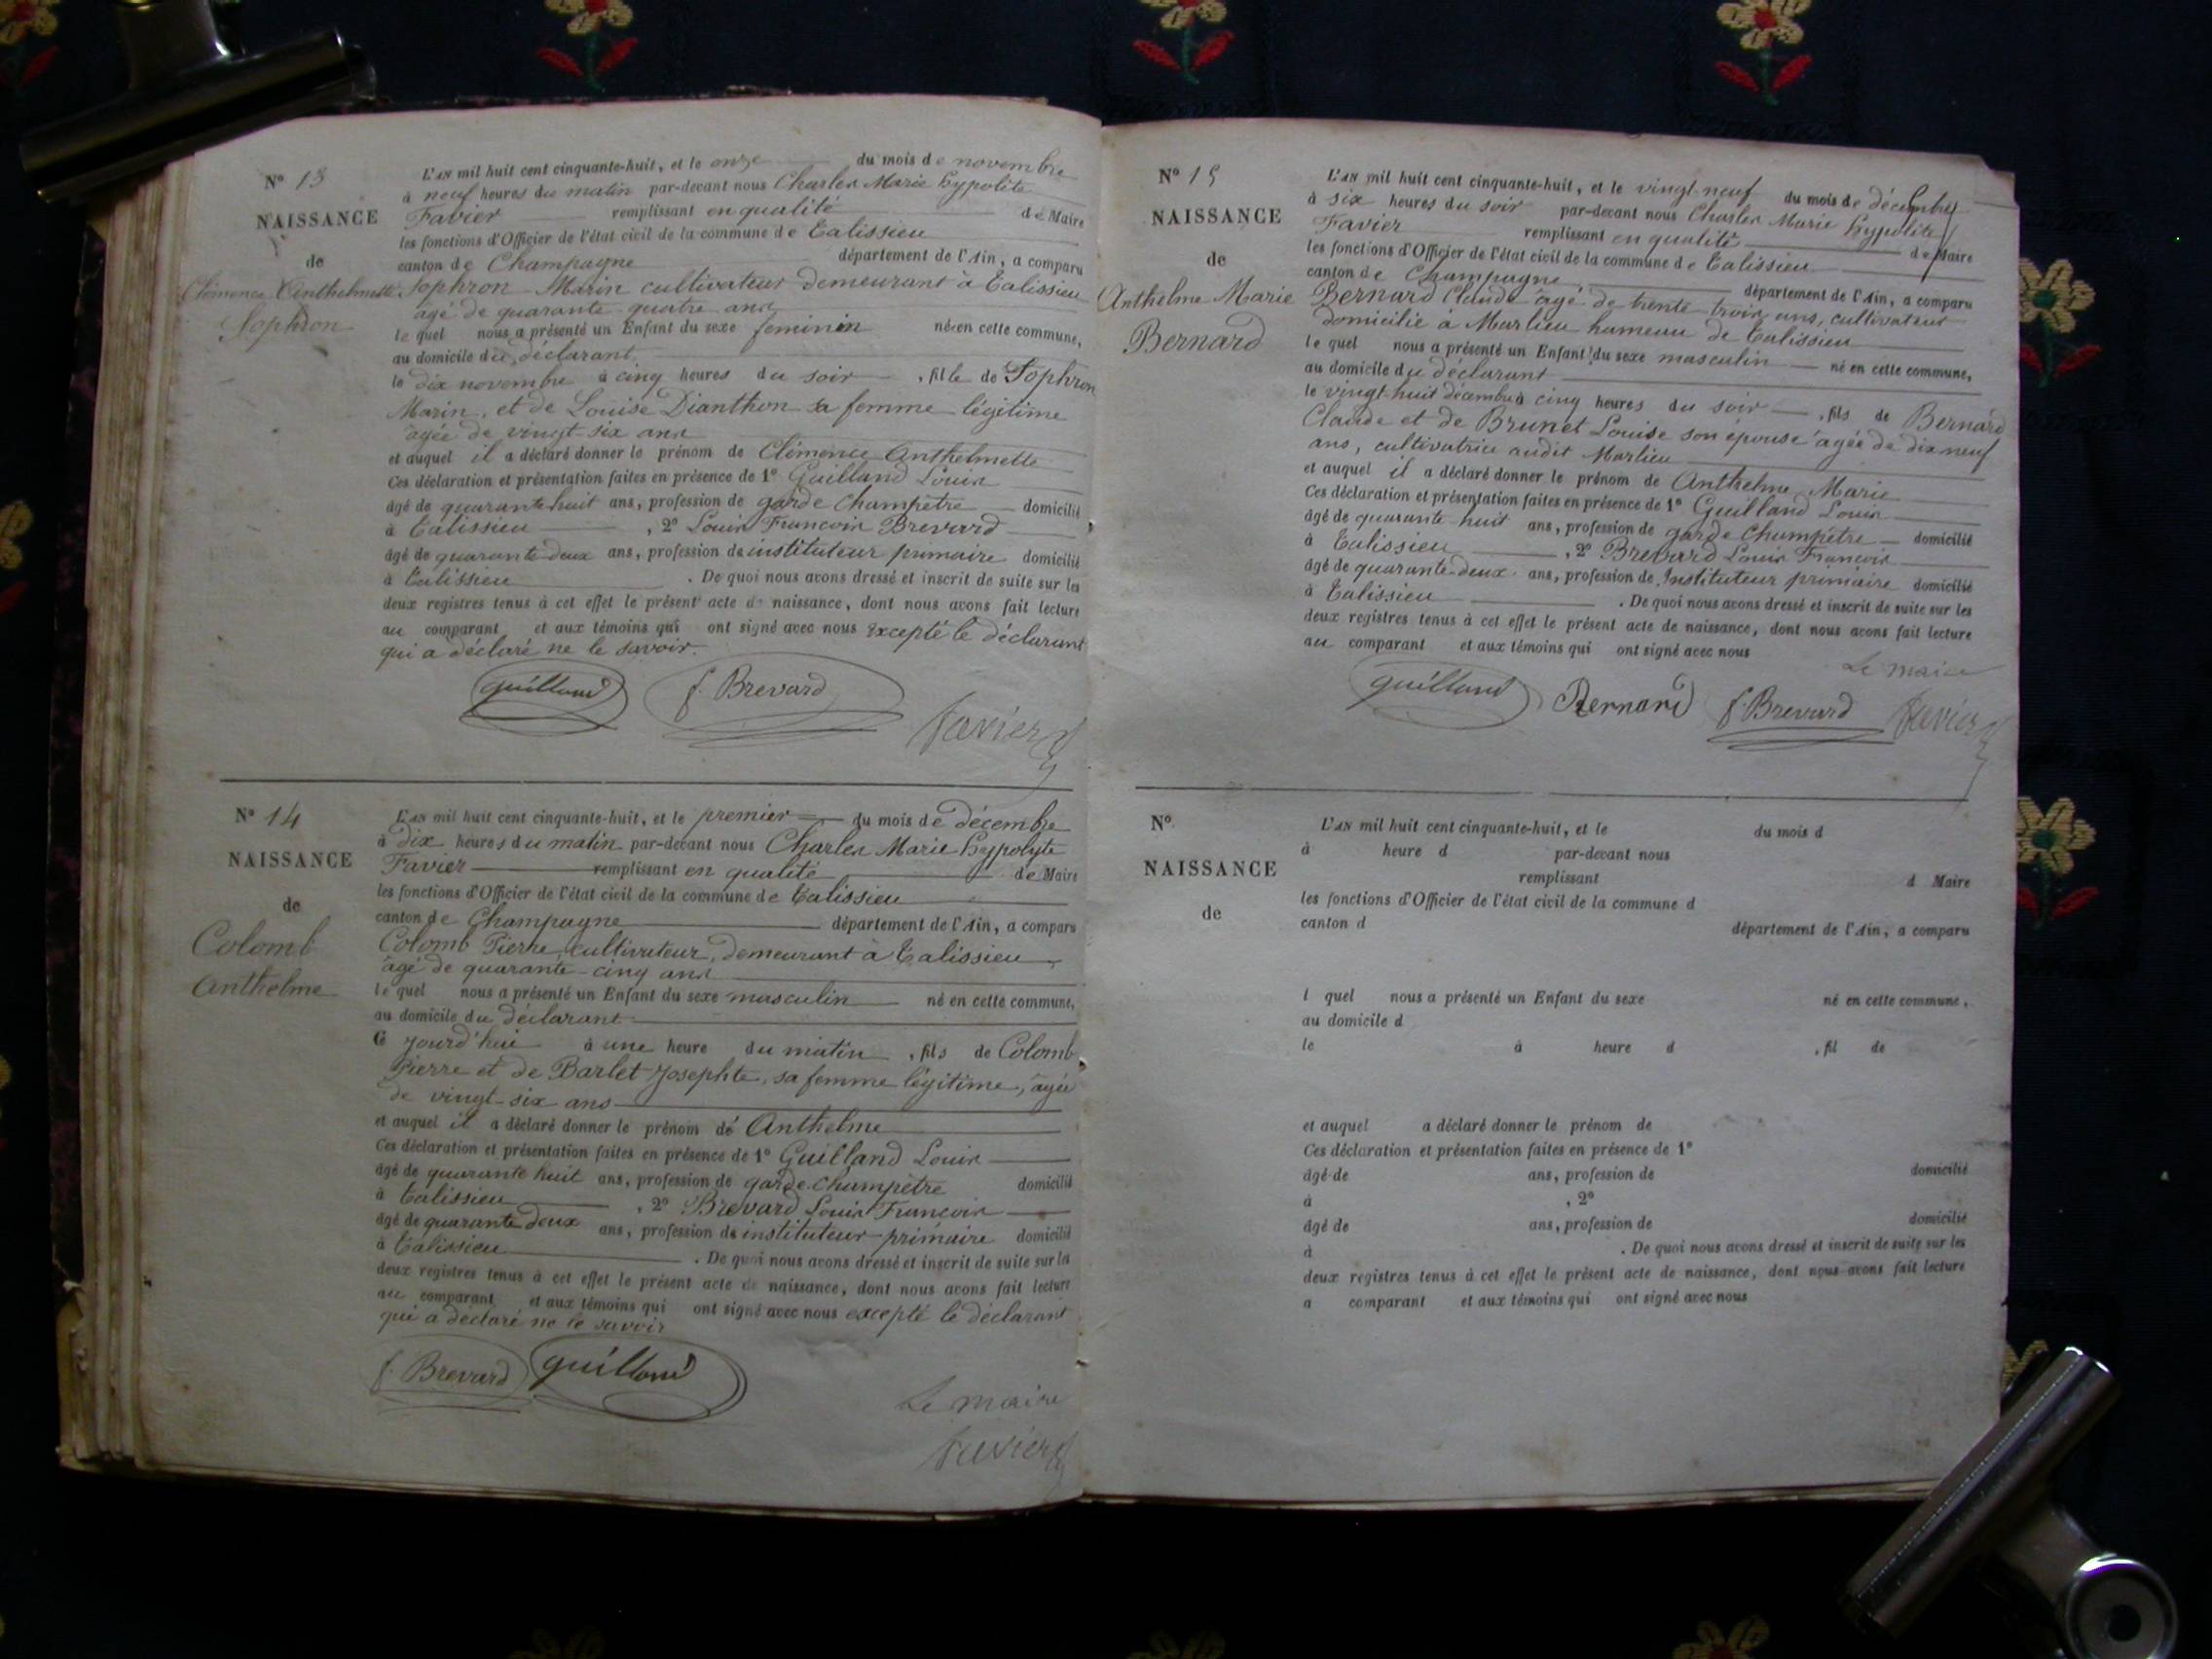 N° 13
NAISSANCE
de
Clémence Anthelmette
Sophron
L'AN mil huit cent cinquante-huit, et le onze du mois de novembre
à neuf heures du matin par-devant nous Charles Marie hypolite
Favier remplissant en qualité de Maire
les fonctions d'Officier de l'état civil de la commune de Talissieu
canton de Champagne département de l'Ain, a comparu
Sophron Marin cultivateur demeurant à Talissieu
âgé de quarante quatre ans
le quel nous a présenté un Enfant du sexe feminin née en cette commune,
au domicile du déclarant
le dix novembre à cinq heures du soir , fille de Sophron
Marin, et de Louise Dianthon sa femme légitime
âgée de vingt-six ans
et auquel il a déclaré donner le prénom de Clémence Anthelmette
Ces déclaration et présentation faites en présence de 1° Guilland Louis
âgé de quarante huit ans, profession de garde champêtre domicilié
à Talissieu , 2° Louis François Brevard
âgé de quarante-deux ans, profession de instituteur primaire domicilié
à Talissieu . De quoi nous avons dressé et inscrit de suite sur les
deux registres tenus à cet effet le présent acte de naissance, dont nous avons fait lecture
au comparant et aux témoins qui ont signé avec nous excepté le déclarant
qui a déclaré ne le savoir.
guilland f. Brevard
Favier
N° 14
NAISSANCE
de
Colomb
Anthelme
L'AN mil huit cent cinquante-huit, et le premier du mois de décembre
à dix heures du matin par-devant nous Charles Marie hypolyte
Favier remplissant en qualité de Maire
les fonctions d'Officier de l'état civil de la commune de Talissieu
canton de Champagne département de l'Ain, a comparu
Colomb Pierre, cultivateur, demeurant à Talissieu
âgé de quarante-cinq ans
le quel nous a présenté un Enfant du sexe masculin né en cette commune,
au domicile du déclarant
Ce jourd'hui à une heure du matin , fils de Colomb
Pierre et de Barlet Josephte, sa femme légitime, âgée
de vingt-six ans
et auquel il a déclaré donner le prénom de Anthelme
Ces déclaration et présentation faites en présence de 1° Guilland Louis
âgé de quarante huit ans, profession de garde champêtre domicilié
à Talissieu , 2° Brevard Louis François
âgé de quarante deux ans, profession de instituteur primaire domicilié
à Talissieu . De quoi nous avons dressé et inscrit de suite sur les
deux registres tenus à cet effet le présent acte de naissance, dont nous avons fait lecture
au comparant et aux témoins qui ont signé avec nous excepté le déclarant
qui a déclaré ne le savoir
f. Brevard guilland
Le maire
Favier
N° 15
NAISSANCE
de
Anthelme Marie
Bernard
L'AN mil huit cent cinquante-huit, et le vingt-neuf du mois de décembre
à six heures du soir par-devant nous Charles Marie hypolite
Favier remplissant en qualité de Maire
les fonctions d'Officier de l'état civil de la commune de Talissieu
canton de Champagne département de l'Ain, a comparu
Bernard Claude âgé de trente trois ans, cultivateur
domicilié à Marlieu hameau de Talissieu
le quel nous a présenté un Enfant du sexe masculin né en cette commune,
au domicile du déclarant
le vingt-huit décembre à cinq heures du soir , fils de Bernard
Claude et de Brunet Louise son épouse âgée de dix neuf
ans, cultivatrice audit Marlieu
et auquel il a déclaré donner le prénom de Anthelme Marie
Ces déclaration et présentation faites en présence de 1° Guilland Louis
âgé de quarante huit ans, profession de garde champêtre domicilié
à Talissieu , 2° Brevard Louis François
âgé de quarante-deux ans, profession de Instituteur primaire domicilié
à Talissieu . De quoi nous avons dressé et inscrit de suite sur les
deux registres tenus à cet effet le présent acte de naissance, dont nous avons fait lecture
au comparant et aux témoins qui ont signé avec nous
Le maire
guilland Bernard f. Brevard Favier
N°
NAISSANCE
de
L'AN mil huit cent cinquante-huit, et le du mois d
à heure d par-devant nous
remplissant d Maire
les fonctions d'Officier de l'état civil de la commune d
canton d département de l'Ain, a comparu
l quel nous a présenté un Enfant du sexe né en cette commune,
au domicile d
le à heure d , fil de
et auquel a déclaré donner le prénom de
Ces déclaration et présentation faites en présence de 1°
âgé de ans, profession de domicilié
à , 2°
âgé de ans, profession de domicilié
à . De quoi nous avons dressé et inscrit de suite sur les
deux registres tenus à cet effet le présent acte de naissance, dont nous avons fait lecture
a comparant et aux témoins qui ont signé avec nous